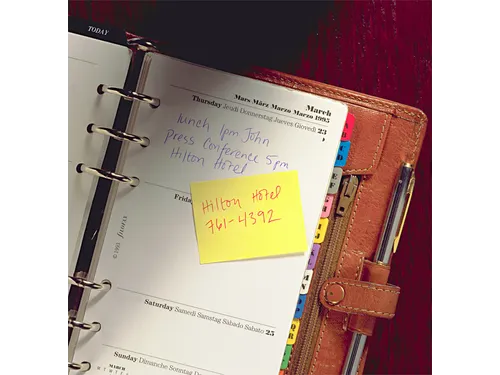 TODAY
March
Mars März Marzo Marzo 1995
Thursday Jeudi Donnerstag Jueves Giovedì 23
lunch 1pm John
Press Conference 5pm
Hilton Hotel
Hilton Hotel
761-4392
Frida
© 1995 filofax
Saturday Samedi Samstag Sábado Sabato 25
Sunday Dimanche Sonntag Do
MARCH